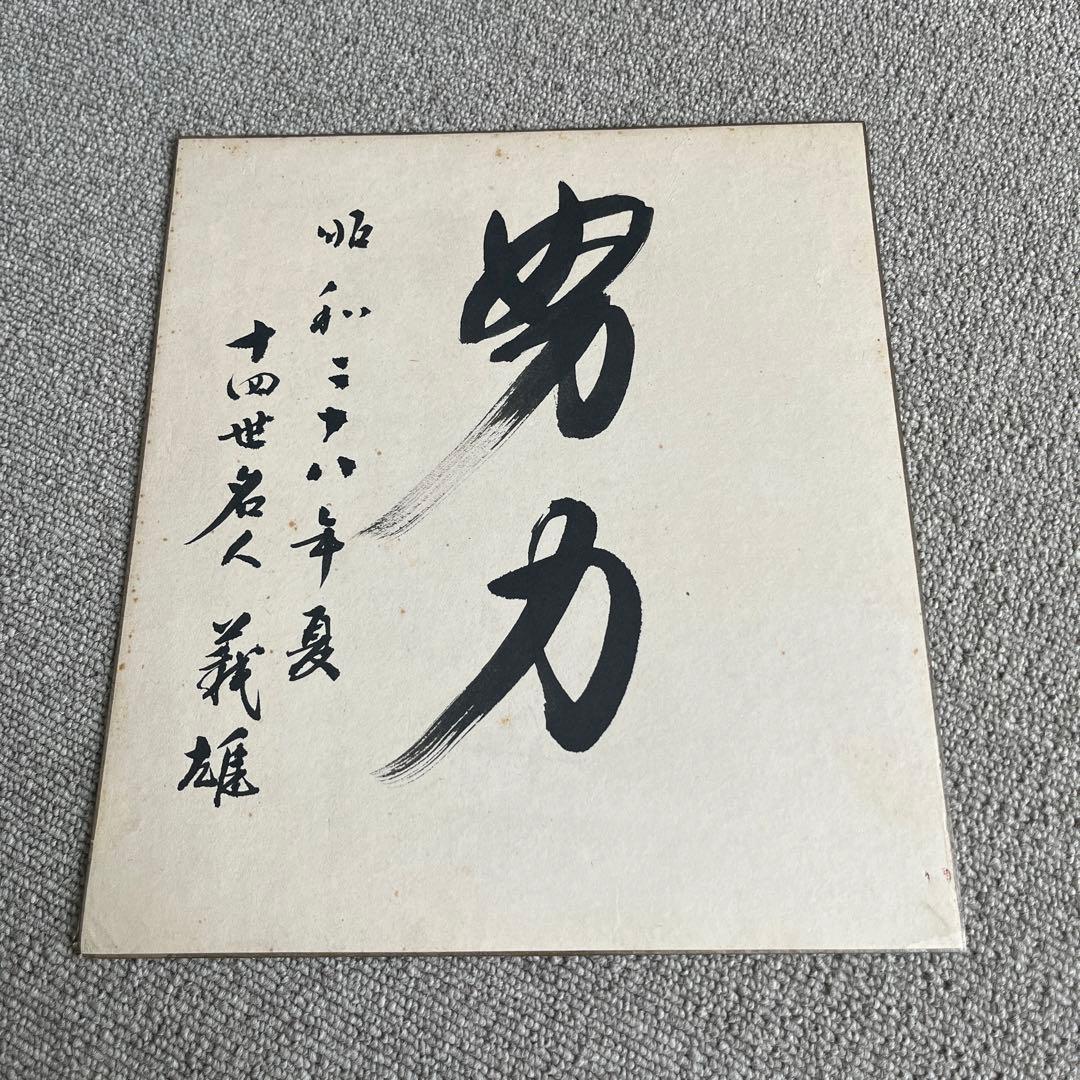 努力
昭和二十八年夏
十四世名人 義雄